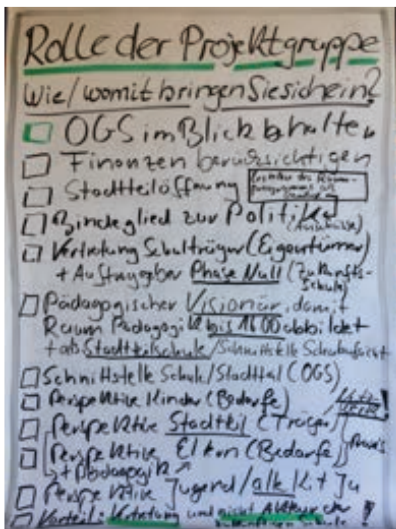 Rolle der Projektgruppe
Wie/womit bringen Sie sich ein?
OGS im Blick behalten
Finanzen berücksichtigen
Stadtteilöffnung
Bindeglied zur Politik (Ausschüsse)
Vertretung Schulträger (Eigentümer)
+ Auftraggeber Phase Null (Zukunfts-
Schule)
Pädagogischer Visionär, damit
Raum Pädagogik bis 16.00 abbildet
+ als Stadtteilschule / Schnittstelle Schulaufsicht
Schnittstelle Schule/Stadtteil (OGS)
Perspektive Kinder (Bedarfe)
Perspektive Stadtteil (Träger)
Perspektive Eltern (Bedarfe)
+ Pädagogik
Perspektive Jugend/alle Ki + Ju
Vorteil: Vertretung und nicht